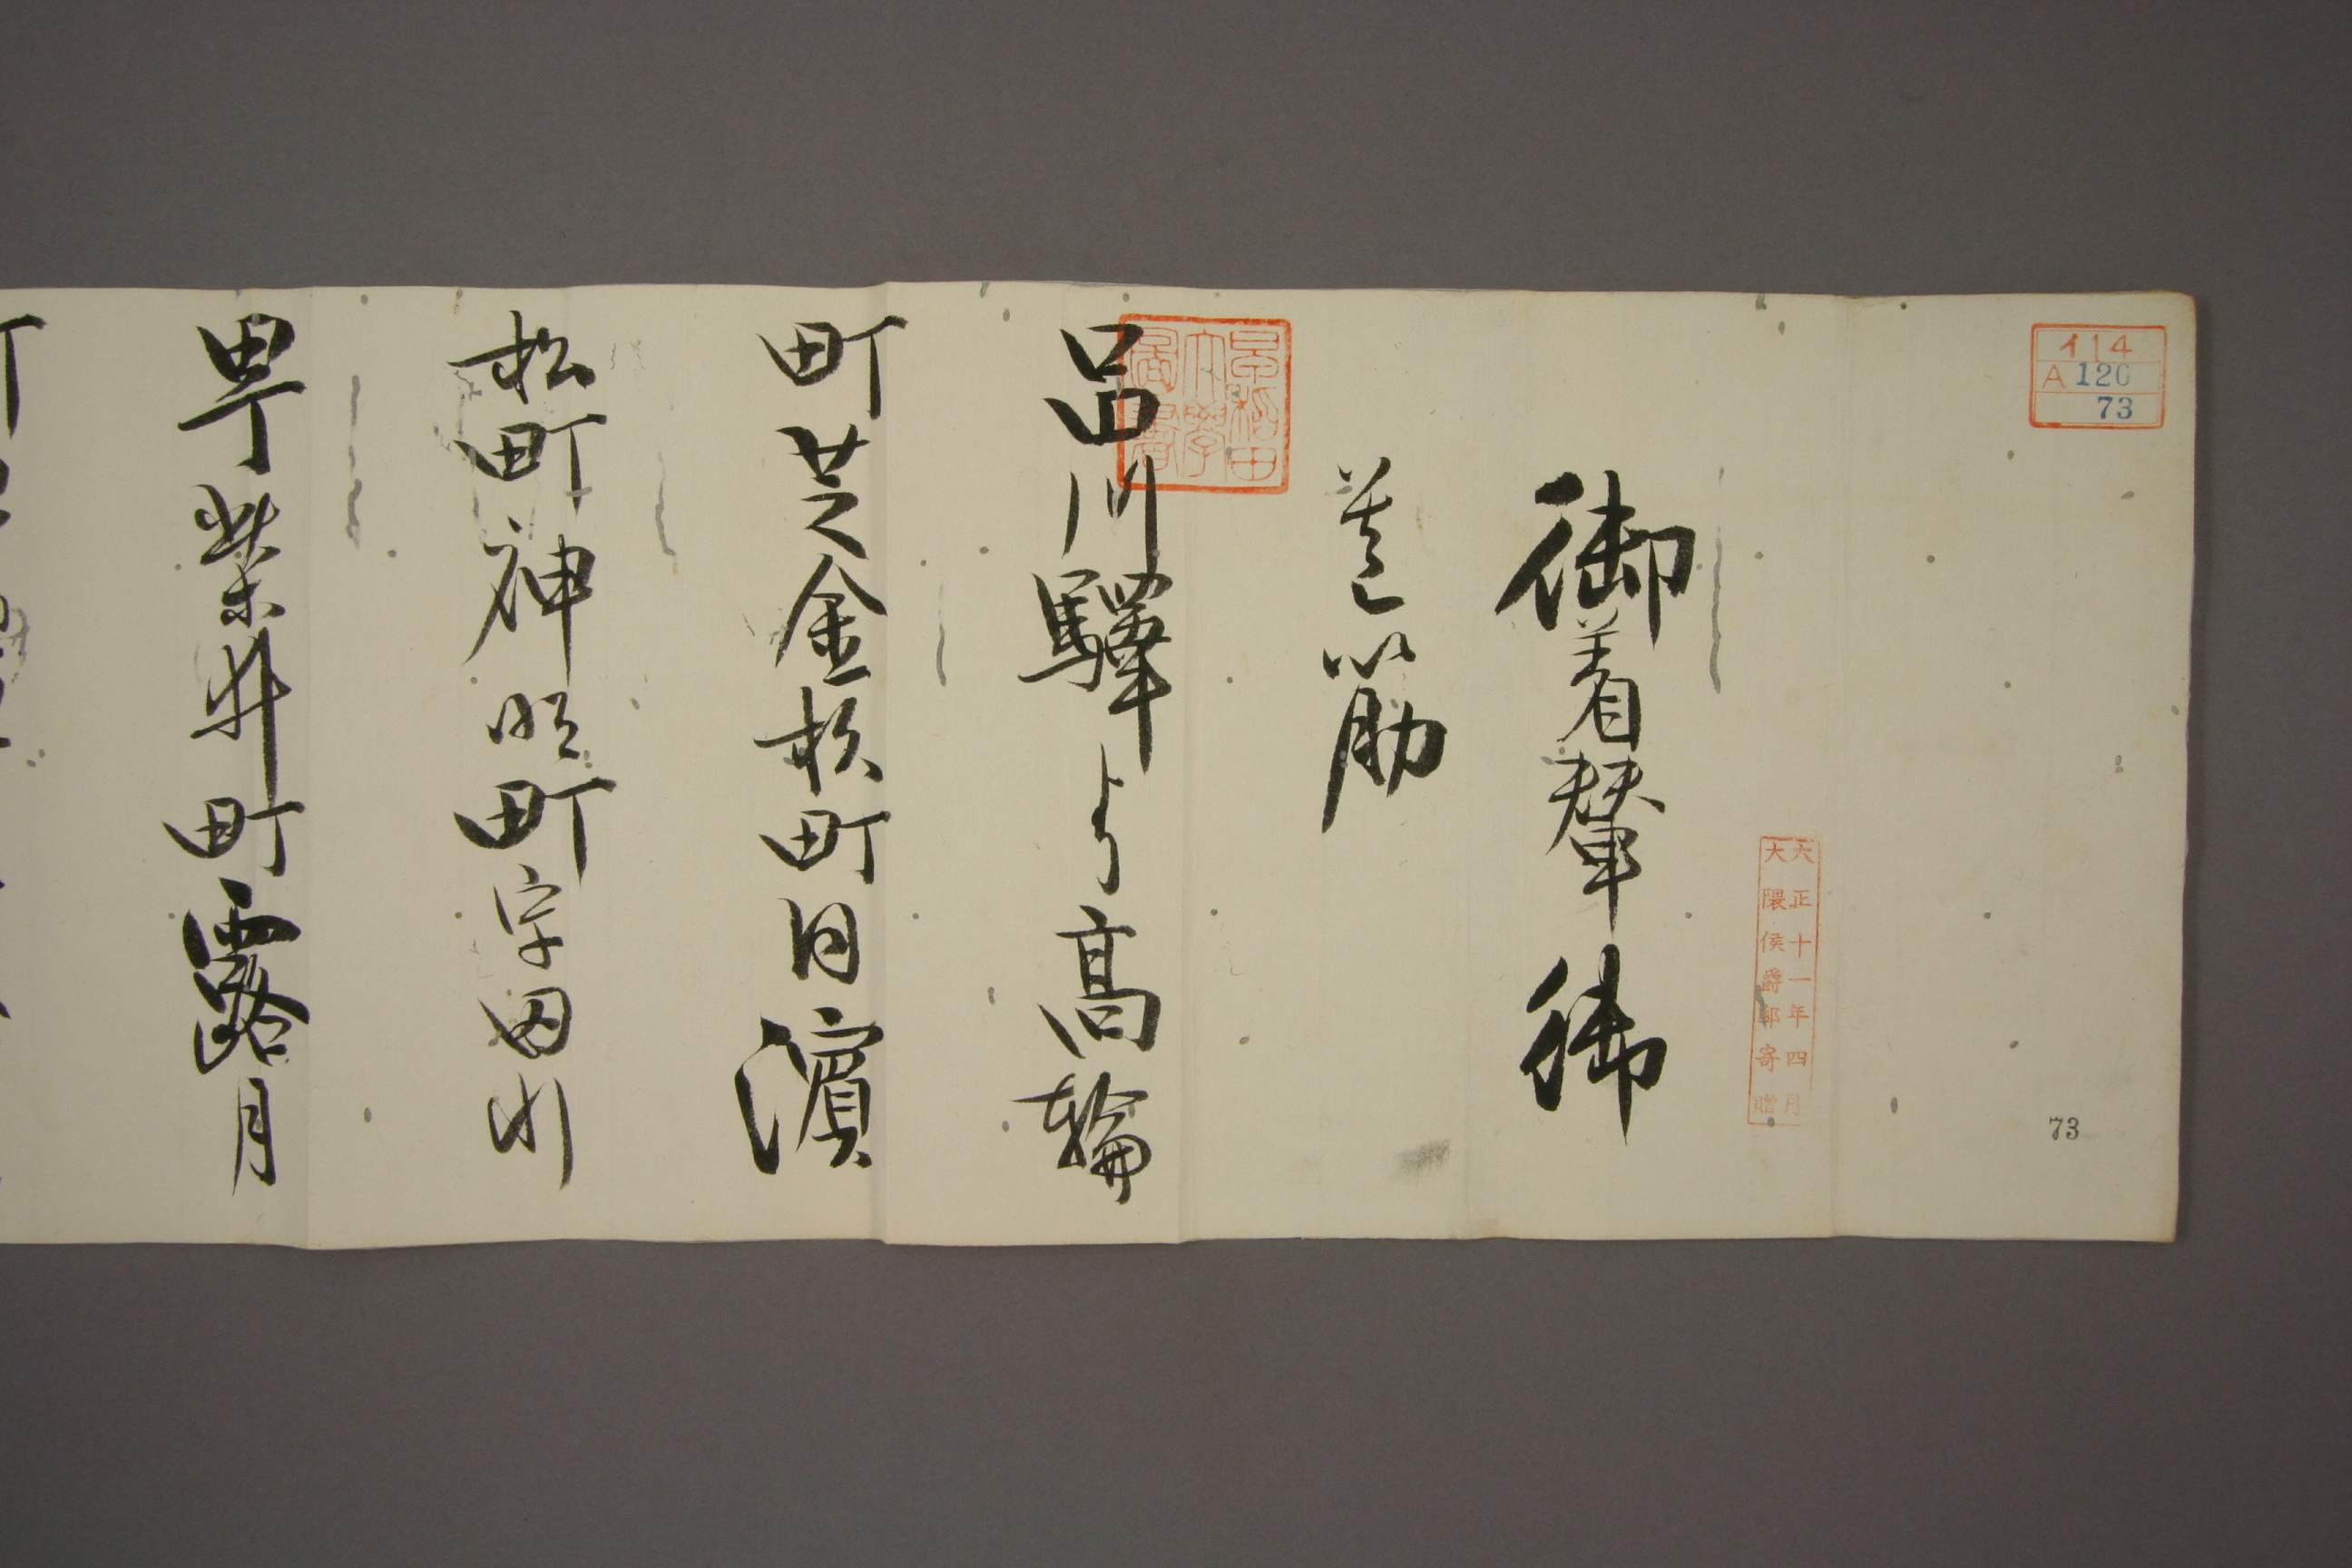 イ14
A 120
73
大正十一年四月
大隈侯爵邸寄贈
73
早稲田
大学
図書
御着輦御
道筋
品川驛より高輪
町芝金杉町同濱
松町神明町宇田川
町柴井町露月
町